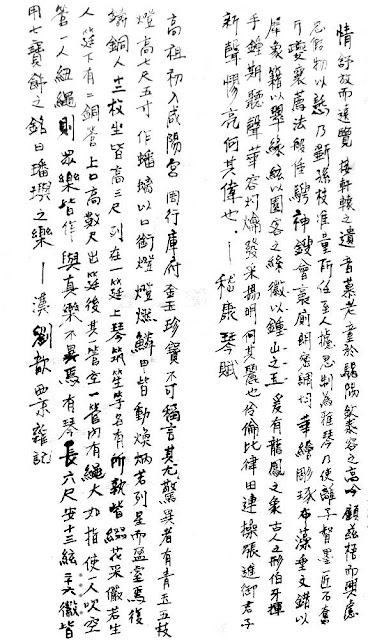 情舒放而遠覽 接軒轅之遺音 慕老童於騩隅 欽泰容之高吟 顧茲梧而興慮
思假物以託心 乃斲孫枝准量所任至人攄思制為雅琴乃使離子督墨匠石奮
斤夔襄薦法般倕騁神鎪會裛廁朗密調均 華繪彫琢布藻垂文錯以
犀象籍以翠綠絃以園客之絲徽以鍾山之玉 爰有龍鳳之象古人之形伯牙揮
手鍾期聽聲華容灼爚發采揚明何其麗也伶倫比律田連操張進御君子
新聲憀亮何其偉也.——嵇康琴賦
高祖初入咸陽宮 周行庫府金玉珍寶不可稱言其尤驚異者有青玉五枝
燈高七尺五寸 作蟠螭以口銜燈燈燃鱗甲皆動煥炳若列星而盈室焉復
鑄銅人十二枚坐皆高三尺列在一筵上琴筑笙竽各有所執皆綴花采儼若生
人 筵下有二銅管上口高數尺出筵後其一管空一管內有繩大如指使一人吹空
管一人紐繩則眾樂皆作與真樂不異焉有琴長六尺安十三絃二十六徽皆
用七寶飾之銘曰璠璵之樂——漢劉歆西京雜記